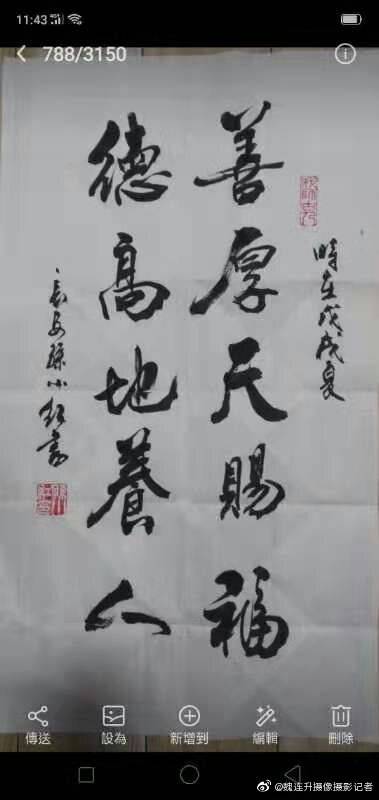 11:43
788/3150
時在戊戌夏
善厚天賜福
德高地養人
長安孫小紅書
傳送 設為 新增到 編輯 刪除
@魏连升摄像摄影记者